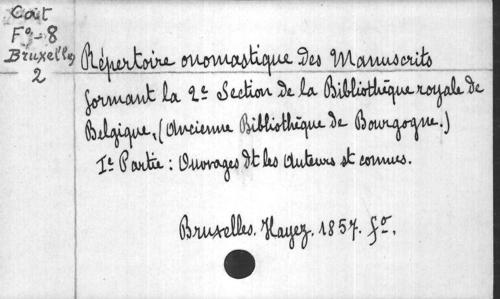 Cat
Fº-8
Bruxelles
2
Répertoire onomastique des Manuscrits
formant la 2e Section de la Bibliothèque royale de
Belgique, (Ancienne Bibliothèque de Bourgogne.)
Ie Partie : Ouvrages dt les Auteurs st connus.
Bruxelles. Hayez. 1857. fº.